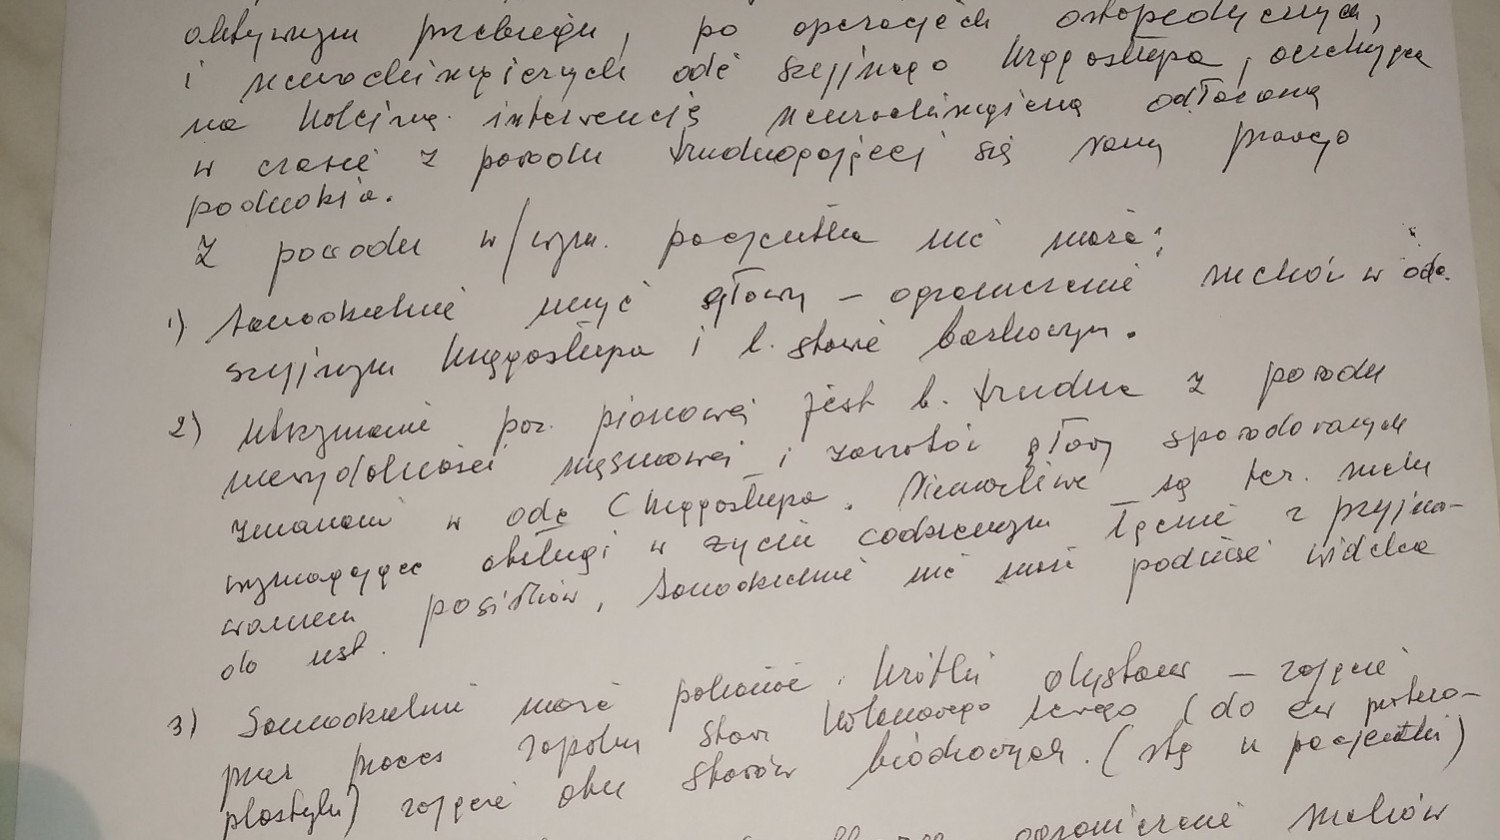 aktywnym przebiegu, po operacjach ortopedycznych,
i neurochirurgicznych odc szyjnego kręgosłupa, oczekująca
na kolejną interwencję neurochirurgiczną odłożoną
w czasie z powodu trudnogojącej się rany prawego
podudzia.
Z powodu w/wym. pacjentka nie może:
1) Samodzielnie umyć głowy – ograniczenie ruchów w odc.
szyjnym kręgosłupa i l. stawie barkowym.
2) utrzymanie poz. pionowej jest b. trudne z powodu
niewydolności mięśniowej i zawrotów głowy spowodowanych
zmianami w odc C kręgosłupa. Niemożliwe są też ruchy
wymagające obsługi w życiu codziennym łącznie z przyjmo-
waniem posiłków, samodzielnie nie może podnieść widelca
do ust.
3) Samodzielnie może pokonać krótki dystans – zajęcie
przez proces zapalny staw kolanowego lewego (do ew protezo-
plastyki) zajęcie obu stawów biodrowych. (stę u pacjentki)
ograniczenie ruchów